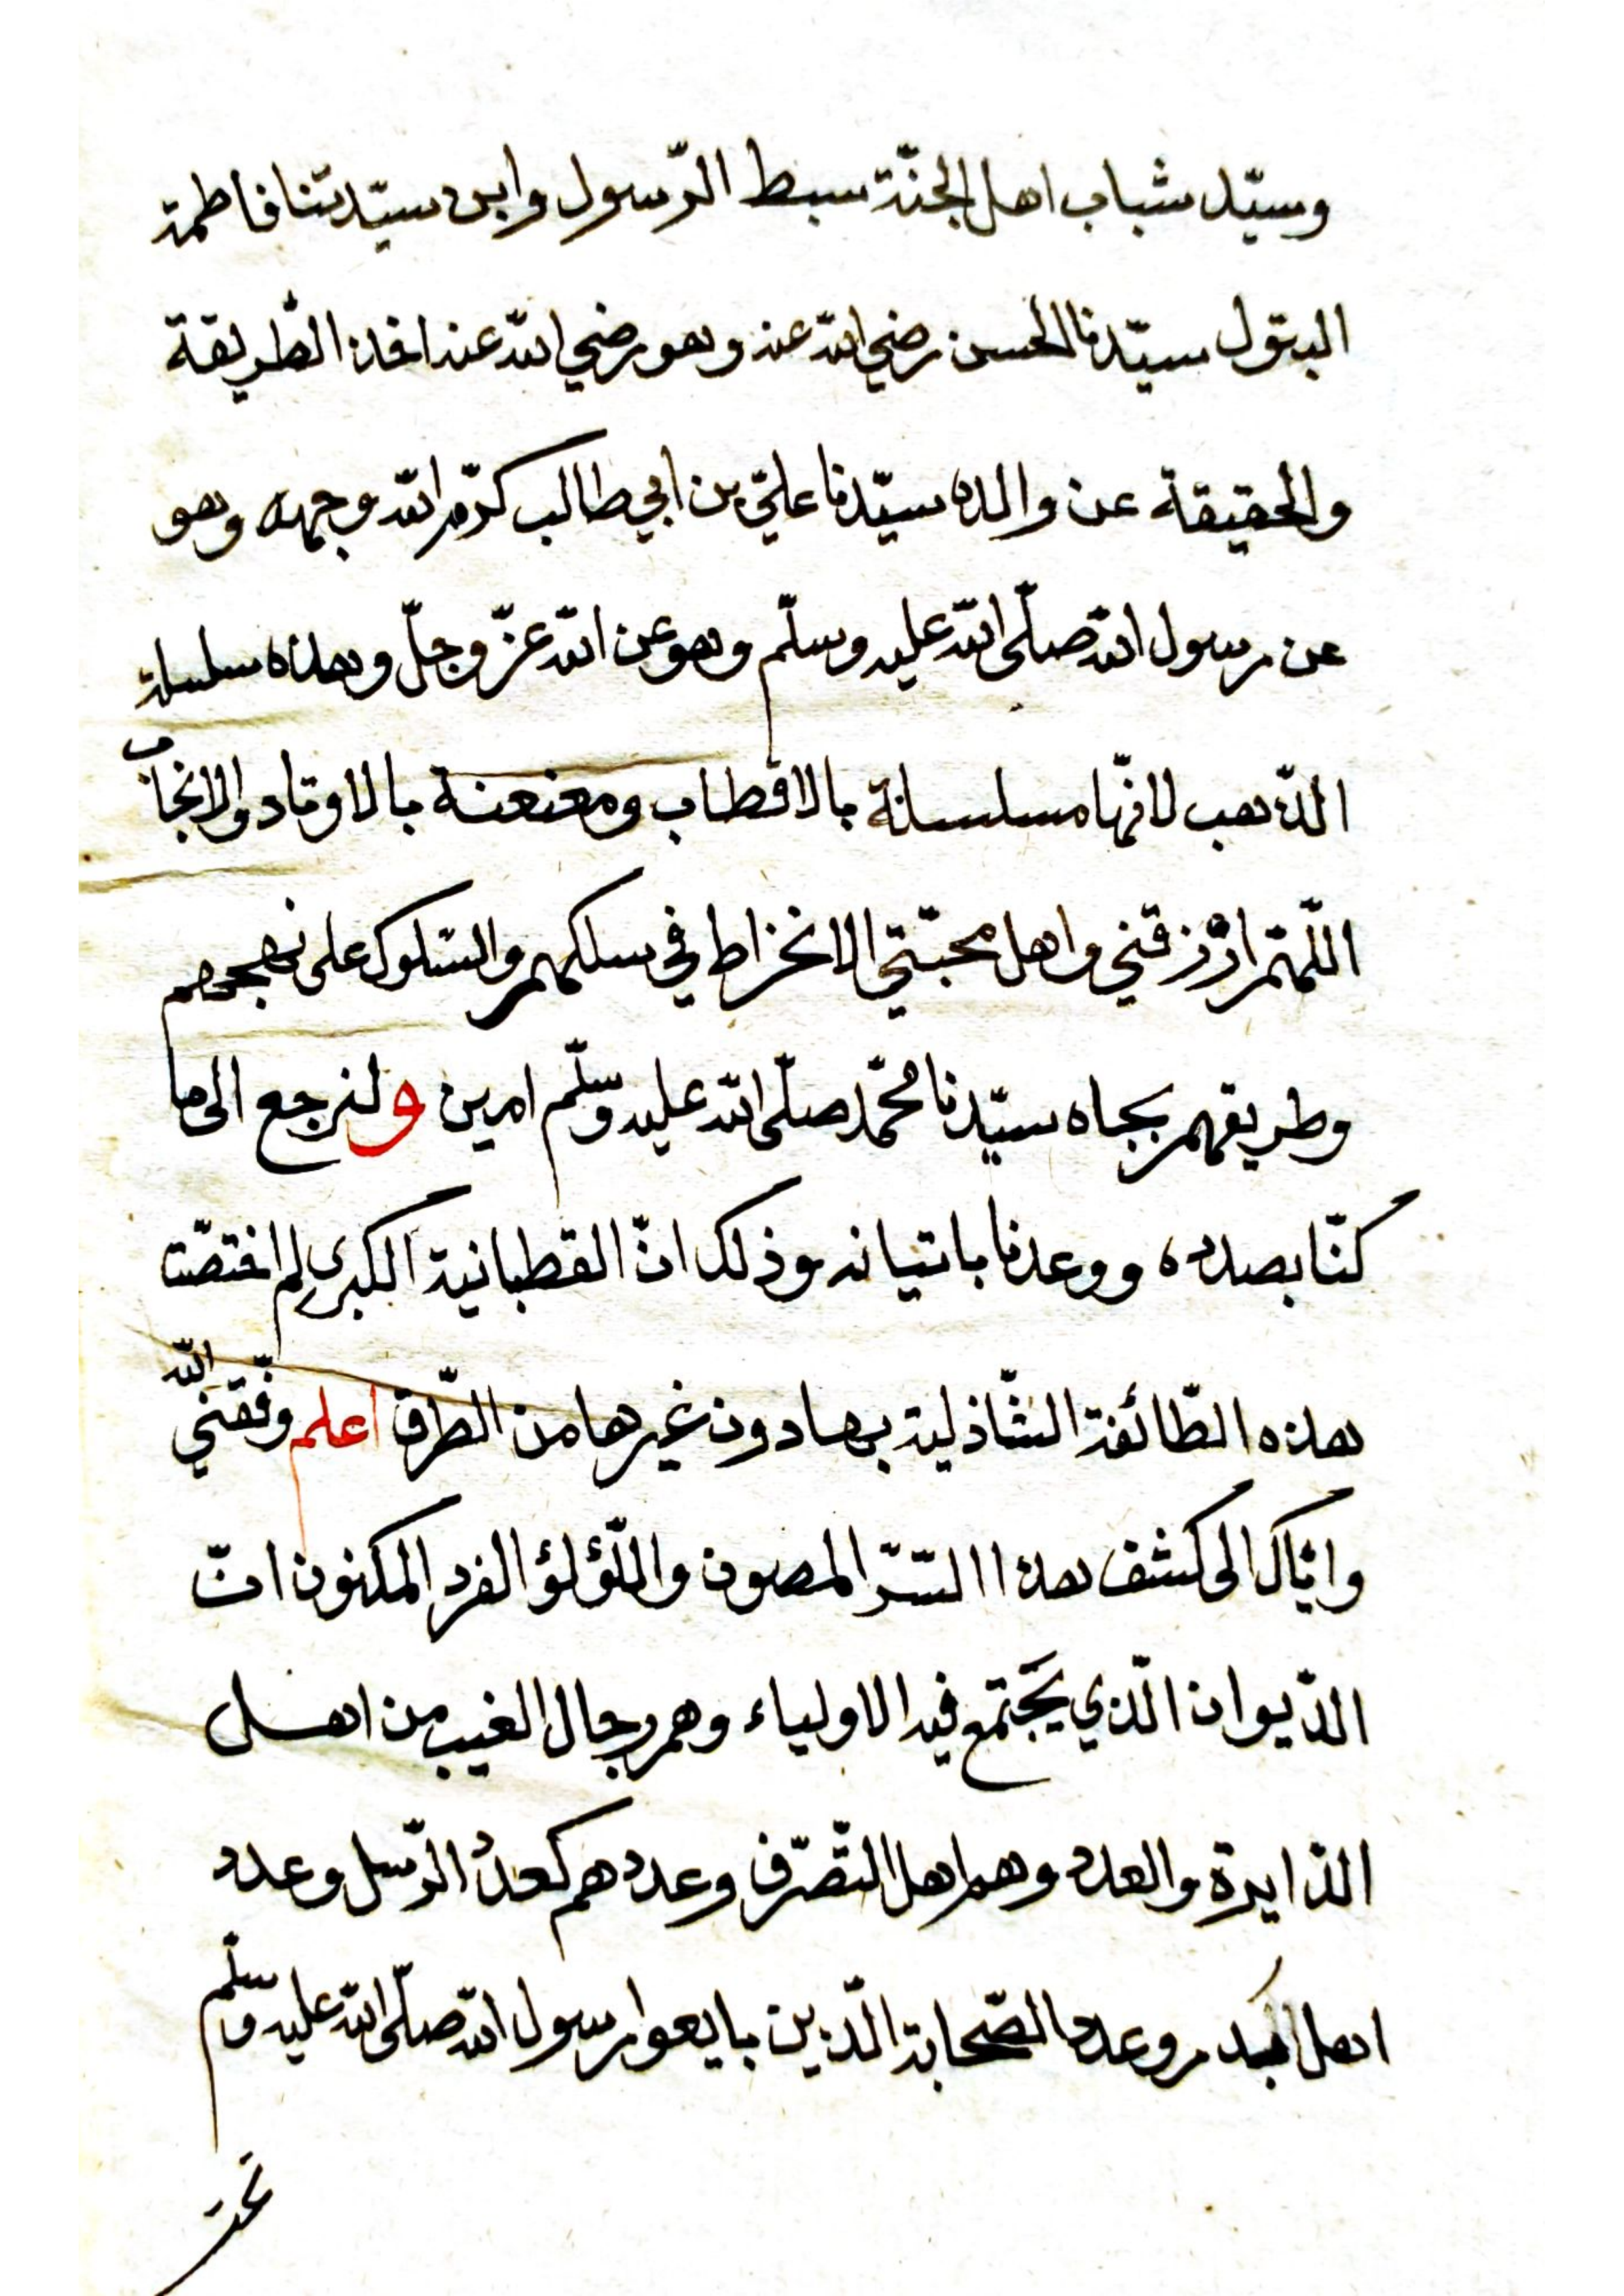 وسيّد شباب اهل الجنّة سبط الرّسول وابن سيّدتنا فاطمة
البتول سيّدنا الحسن رضي الله عنه وهو رضي الله عنه اخذ الطّريقة
والحقيقة عن والده سيّدنا عليّ بن ابي طالب كرّم الله وجهه وهو
عن رسول الله صلّى الله عليه وسلّم وهو عن الله عزّ وجلّ وهذه سلسلة
الذّهب لانّها مسلسلة بالاقطاب ومعنعنة بالاوتاد والانجاب
اللّهمّ ارْزقني واهل محبّتي الانخراط في سلكهم والسّلوك على نهجهم
وطريقهم بجاه سيّدنا محمّد صلّى الله عليه وسلّم امين ولنرجع الى ما
كنّا بصدده ووعدنا باتيانه وذلك انّ القطبانية الكبرى لم اختصّت
هذه الطّائفة الشّاذلية بها دون غيرها من الطّرق اعلم وفّقني الله
وايّاك الى كشف هذا السّرّ المصون واللّؤلؤ الفرد المكنون انّ
الدّيوان الّذي يَجتمع فيه الاولياء وهم رجال الغيب من اهل
الدّايرة والعدد وهم اهل التّصرّف وعددهم كعدد الرّسل وعدد
اهل بدر وعدد الصّحابة الّذين بايعوا رسول الله صلّى الله عليه وسلّم
تحت